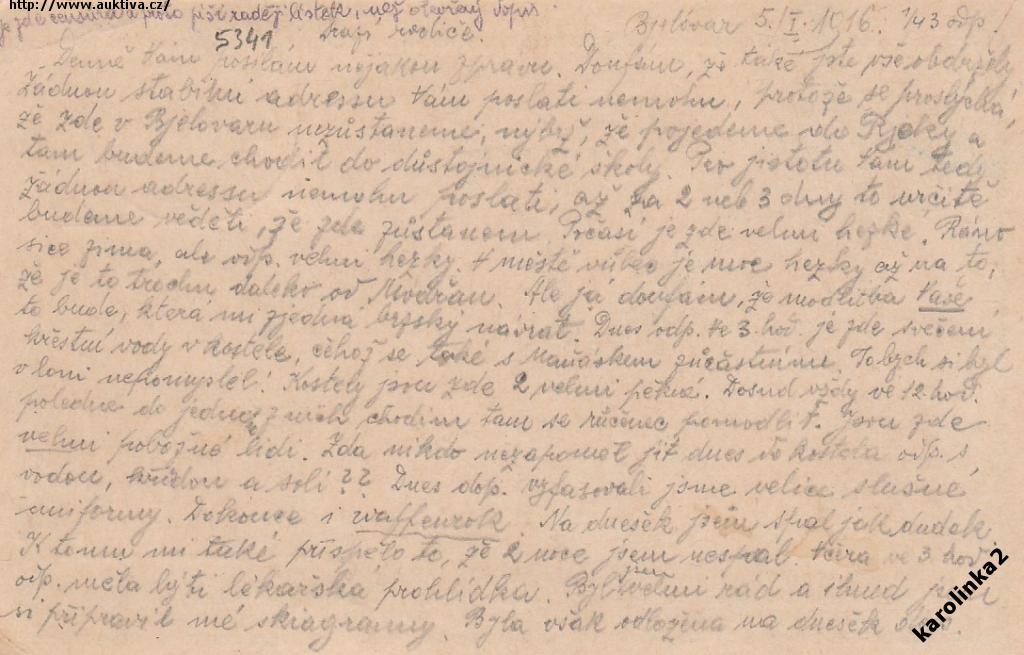 http://www.auktiva.cz/
je zde censura a proto piši raději lístek, než otevřený dopis.
5341 Drazí rodiče. Bjelovar 5./I. 1916. 1/43 odp!
Denně Vám posílám nějakou zprávu. Doufám, že také jste vše obdrželi
Žádnou stabilní adressu Vám poslati nemohu, protože se proslýchá,
že zde v Bjelovaru nezůstaneme, nýbrž, že pojedeme do Rjeky a
tam budeme chodit do důstojnické školy. Pro jistotu Vám tedy
žádnou adressu nemohu poslati, až za 2 neb 3 dny to určitě
budeme věděti, že zde zůstanem. Počasí je zde velmi hezké. Ráno
sice zima, ale odp. velmi hezky. V městě vůbec je moc hezky až na to,
že je to trochu daleko od Modřan. Ale já doufám, že modlitba Vaše
to bude, která mi zjedná brzský návrat. Dnes odp. ve 3. hod. je zde svěcení
křestní vody v kostele, čehož se také s zúčastním. To bych si byl
v loni nepomyslel. Kostely jsou zde 2 velmi pěkné. Dosud vždy ve 12. hod.
poledne do jednoho z nich chodím tam se růženec pomodlit. Jsou zde
velmi pobožné lidi. Zda nikdo nezapoměl jít dnes do kostela odp. s
vodou, křídou a solí?? Dnes dop. vyfasovali jsme velice slušné
uniformy. Dokonce i waffenrok. Na dnešek jsem spal jak dudek.
K tomu mi také přispělo to, že 2 noce jsem nespal. Včera ve 3. hod
odp. měla býti lékařská prohlídka. Byl jsem velmi rád a ihned jsem
si připravil mé skiagrammy. Byla však odložena na dnešek
karolinka2